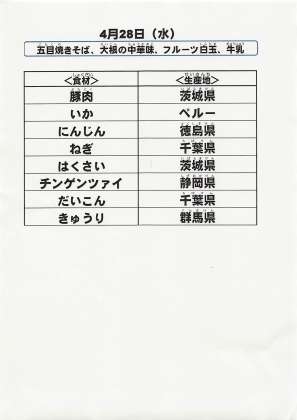 4月28日（水）
五目焼きそば、大根の中華味、フルーツ白玉、牛乳
＜食材＞ ＜生産地＞
豚肉 茨城県
いか ペルー
にんじん 徳島県
ねぎ 千葉県
はくさい 茨城県
チンゲンツァイ 静岡県
だいこん 千葉県
きゅうり 群馬県